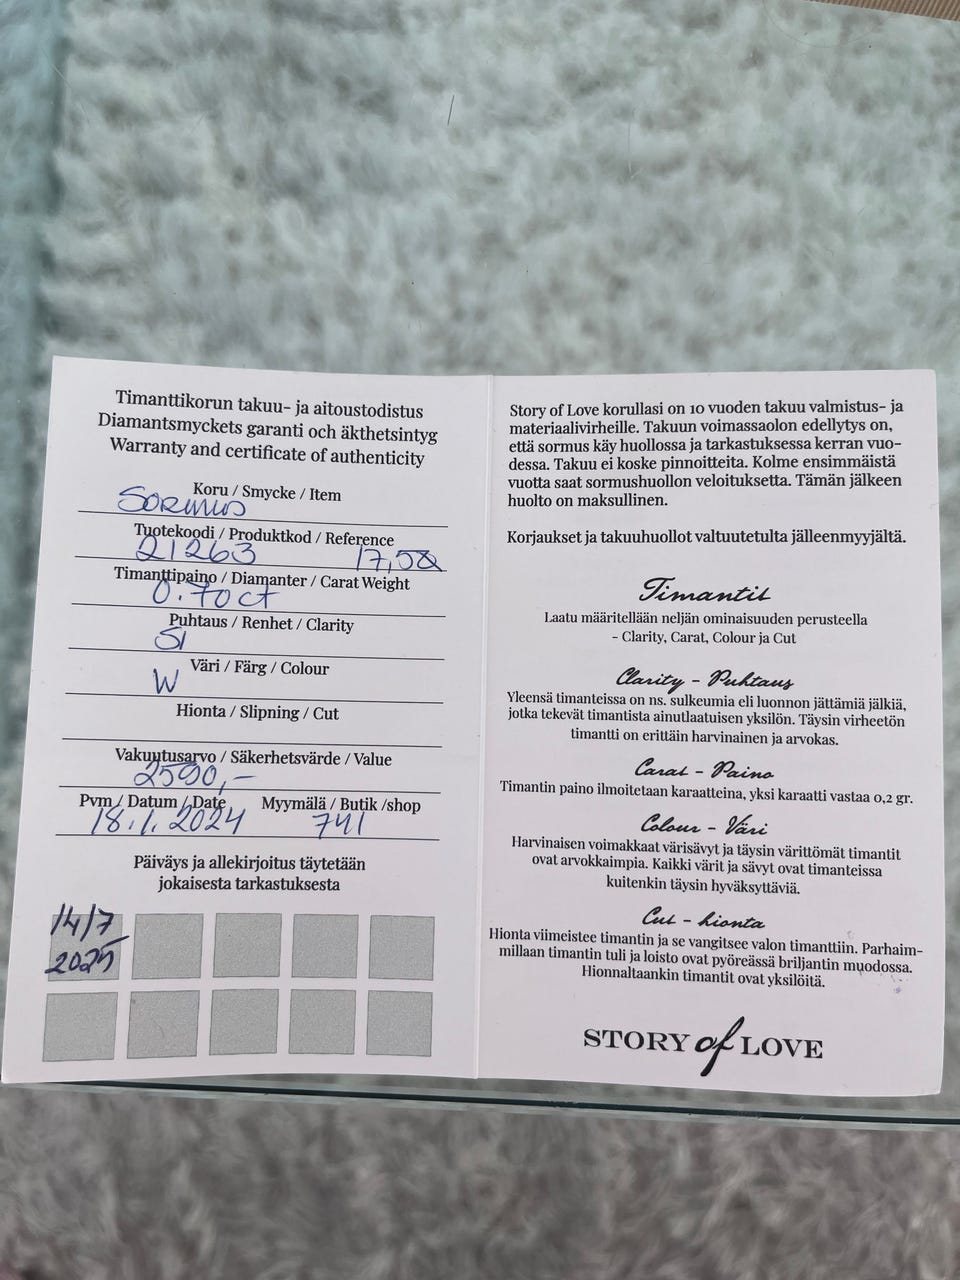 Timanttikorun takuu- ja aitoustodistus
Diamantsmyckets garanti och äkthetsintyg
Warranty and certificate of authenticity
Koru / Smycke / Item
SORMUS
Tuotekoodi / Produktkod / Reference
21263 17,5
Timanttipaino / Diamanter / Carat Weight
0.70 ct
Puhtaus / Renhet / Clarity
SI
Väri / Färg / Colour
W
Hionta / Slipning / Cut
Vakuutusarvo / Säkerhetsvärde / Value
2590,-
Pvm / Datum / Date Myymälä / Butik /shop
18.1.2024 741
Päiväys ja allekirjoitus täytetään
jokaisesta tarkastuksesta
14/7
2025
Story of Love korullasi on 10 vuoden takuu valmistus- ja
materiaalivirheille. Takuun voimassaolon edellytys on,
että sormus käy huollossa ja tarkastuksessa kerran vuo-
dessa. Takuu ei koske pinnoitteita. Kolme ensimmäistä
vuotta saat sormushuollon veloituksetta. Tämän jälkeen
huolto on maksullinen.
Korjaukset ja takuuhuollot valtuutetulta jälleenmyyjältä.
Timantit
Laatu määritellään neljän ominaisuuden perusteella
- Clarity, Carat, Colour ja Cut
Clarity - Puhtaus
Yleensä timanteissa on ns. sulkeumia eli luonnon jättämiä jälkiä,
jotka tekevät timantista ainutlaatuisen yksilön. Täysin virheetön
timantti on erittäin harvinainen ja arvokas.
Carat - Paino
Timantin paino ilmoitetaan karaatteina, yksi karaatti vastaa 0,2 gr.
Colour - Väri
Harvinaisen voimakkaat värisävyt ja täysin värittömät timantit
ovat arvokkaimpia. Kaikki värit ja sävyt ovat timanteissa
kuitenkin täysin hyväksyttäviä.
Cut - hionta
Hionta viimeistee timantin ja se vangitsee valon timanttiin. Parhaim-
millaan timantin tuli ja loisto ovat pyöreässä briljantin muodossa.
Hionnaltaankin timantit ovat yksilöitä.
STORY of LOVE